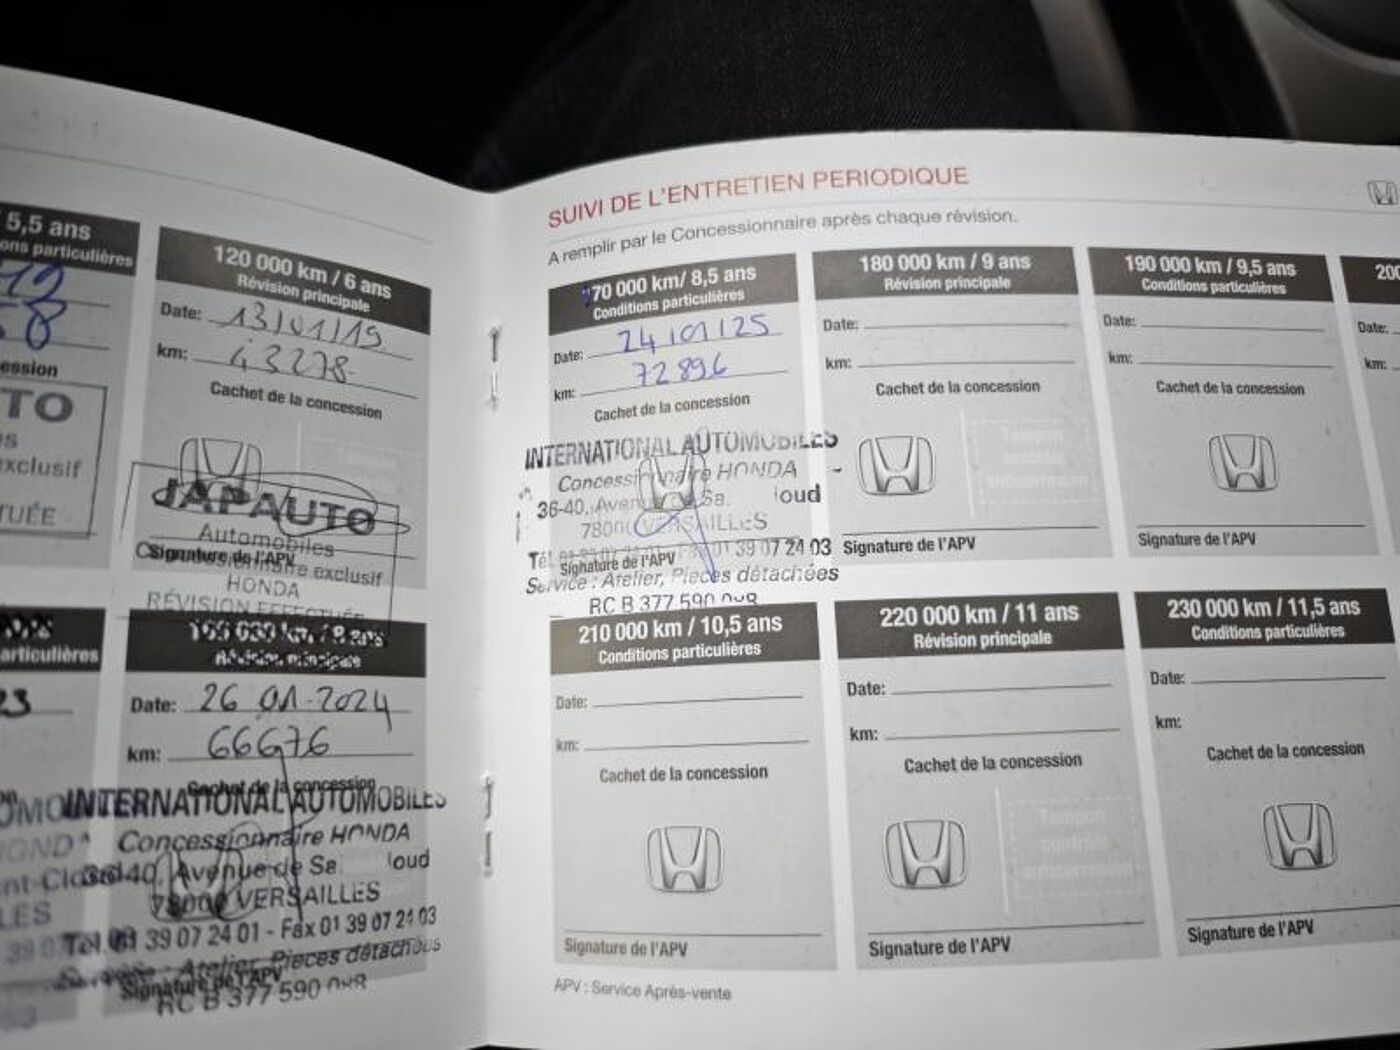 5,5 ans
ons particulières
ession
TO
exclusif
TUÉE
120 000 km / 6 ans
Révision principale
Date: 13/01/19
km: 43278
Cachet de la concession
JAPAUTO
Automobiles
Concessionnaire exclusif
Signature de l'APV
HONDA
RÉVISION EFFECTUÉE
articulières
23
8 ans
Révision principale
Date: 26 01-2024
km: 66676
Cachet de la concession
INTERNATIONAL AUTOMOBILES
Concessionnaire HONDA
36-40, Avenue de Sa loud
78000 VERSAILLES
Tél. 01 39 07 24 01 - Fax 01 39 07 24 03
Service : Atelier, Pièces détachées
Signature de l'APV
RC B 377 590
SUIVI DE L'ENTRETIEN PERIODIQUE
A remplir par le Concessionnaire après chaque révision.
70 000 km/ 8,5 ans
Conditions particulières
Date: 24/01/25
km: 72896
Cachet de la concession
INTERNATIONAL AUTOMOBILES
Concessionnaire HONDA
36-40, Avenue de Sa. loud
78000 VERSAILLES
Tél. 01 39 07 24 01 - Fax 01 39 07 24 03
Signature de l'APV
Service : Atelier, Pièces détachées
RC B 377 590
180 000 km / 9 ans
Révision principale
Date:
km:
Cachet de la concession
Tampon
contrôle
anticorrosion
Signature de l'APV
190 000 km / 9,5 ans
Conditions particulières
Date:
km:
Cachet de la concession
Signature de l'APV
200
Date:
km:
210 000 km / 10,5 ans
Conditions particulières
Date:
km:
Cachet de la concession
Signature de l'APV
220 000 km / 11 ans
Révision principale
Date:
km:
Cachet de la concession
Tampon
contrôle
anticorrosion
Signature de l'APV
230 000 km / 11,5 ans
Conditions particulières
Date:
km:
Cachet de la concession
Signature de l'APV
APV : Service Après-vente